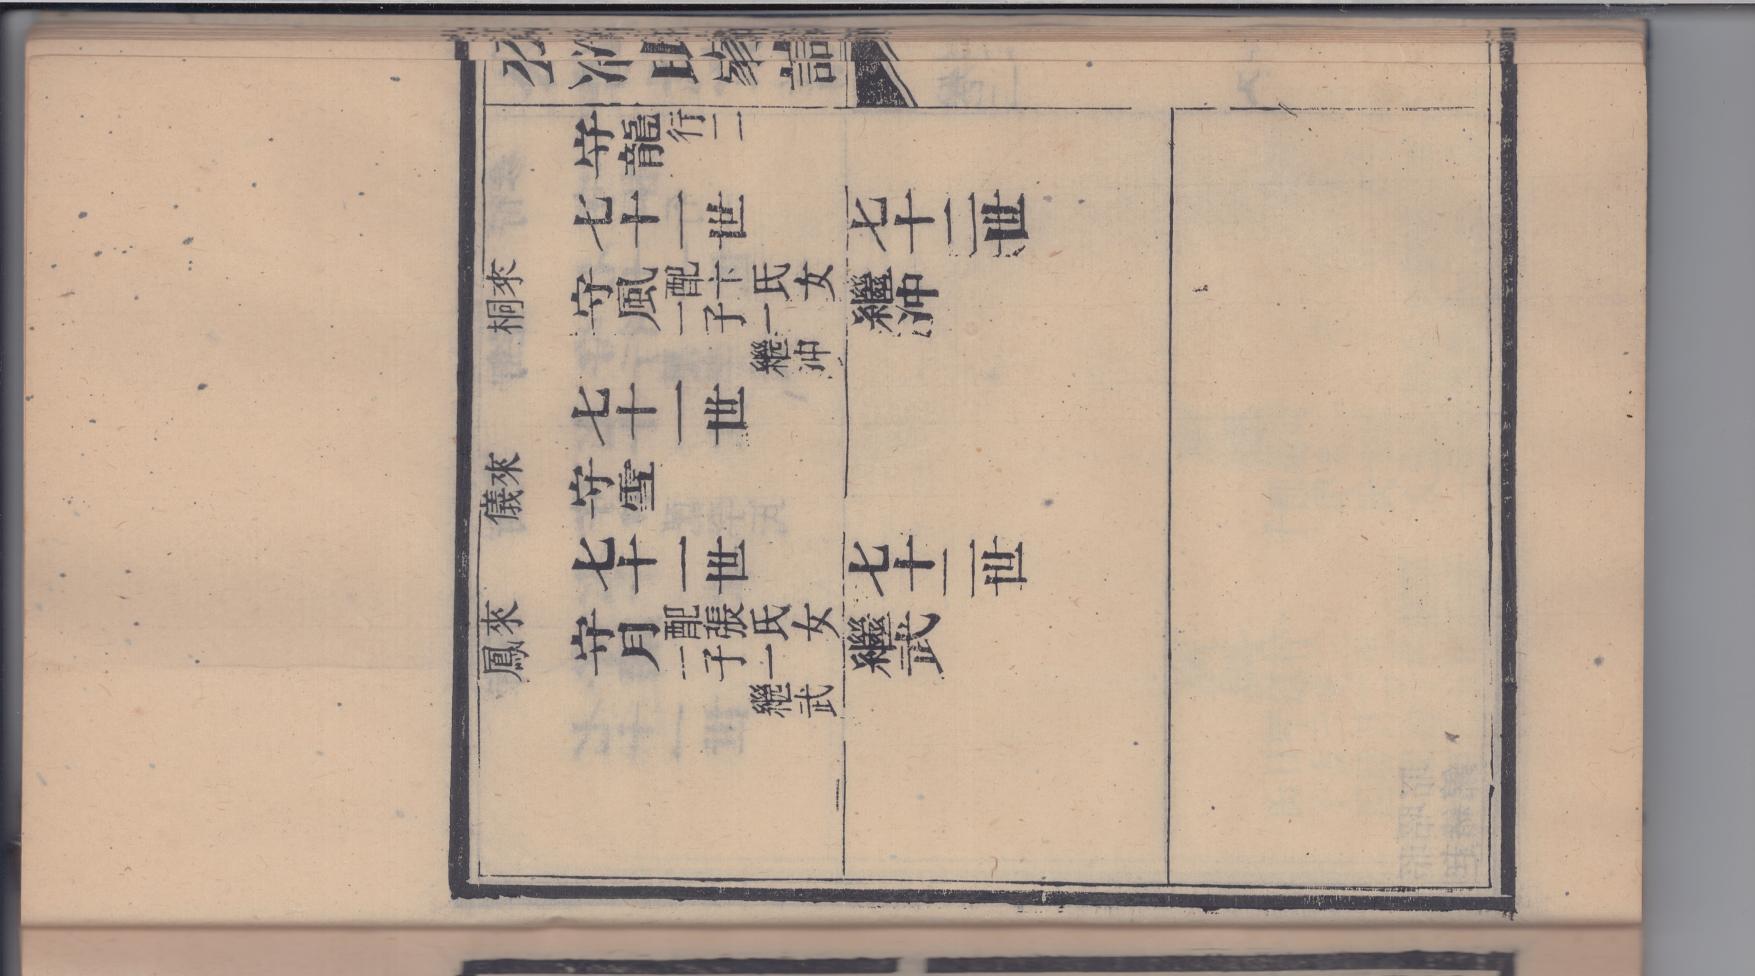 氏家譜
守龍 行二
七十一世 七十二世
桐來 守風 配卞氏女 繼沖
一子一 繼沖
七十一世
儀來 守雪
七十一世 七十二世
鳳來 守月 配張氏女 繼武
一子一 繼武